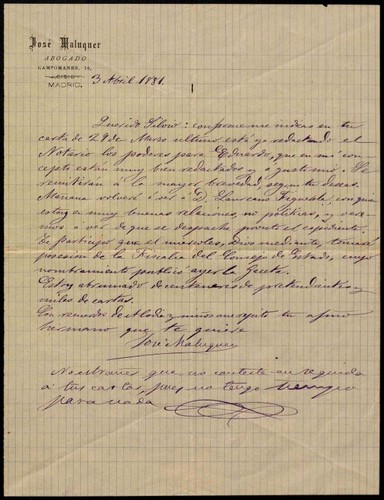 José Maluquer
ABOGADO
CAMPOMANES, 14,
MADRID.
3 Abril 1881.
Querido Silvio: conforme me indicas en tu
carta de 29 de Marzo ultimo está ya redactando el
Notario los poderes para Eduardo, que en mi con-
cepto están muy bien redactados y a gusto mio. Se
remitirán á la mayor brevedad, segun tu deseo.
Mañana volveré á ver á D. Laureano Figuerola, con quien
estoy en muy buenas relaciones, no politicas, y vere-
mos á ver de que se despache pronto el expediente.
Te participo que el miercoles, Dios mediante, tomaré
posesion de la Fiscalia del Consejo de Estado, cuyo
nombramiento publicó ayer la Gaceta.
Estoy abrumado de centenares de pretendientes y
miles de cartas.
Con recuerdos de y niños un ajuto tu afmo
hermano que te quiere
José Maluquer
No estrañes que no conteste en seguida
á tus cartas, pues no tengo tiempo
para nada